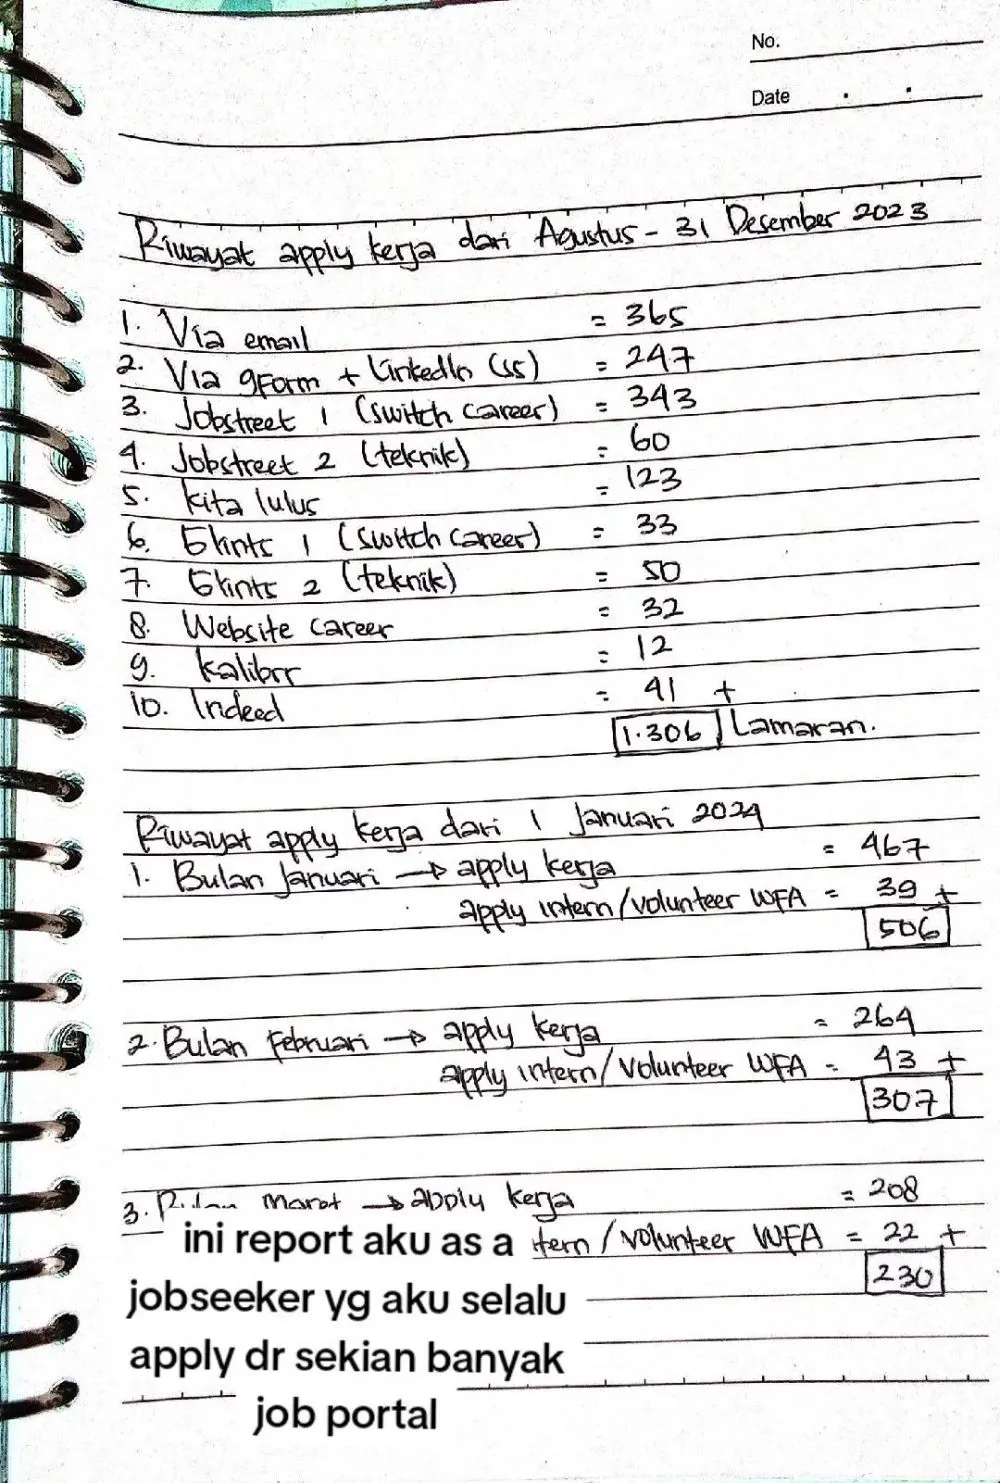 No.
Date . .
Riwayat apply kerja dari Agustus - 31 Desember 2023
1. Via email = 365
2. Via gForm + LinkedIn (ss) = 247
3. Jobstreet 1 (switch career) = 343
4. Jobstreet 2 (teknik) = 60
5. Kita lulus = 123
6. Glints 1 (switch career) = 33
7. Glints 2 (teknik) = 50
8. Website career = 32
9. Kalibrr = 12
10. Indeed = 41 +
1.306 Lamaran.
Riwayat apply kerja dari 1 Januari 2024
1. Bulan Januari → apply kerja = 467
apply intern/volunteer WFA = 39 +
506
2. Bulan Februari → apply kerja = 264
apply intern/volunteer WFA = 43 +
307
3. Bulan Maret → apply kerja = 208
tern/volunteer WFA = 22 +
230
ini report aku as a
jobseeker yg aku selalu
apply dr sekian banyak
job portal